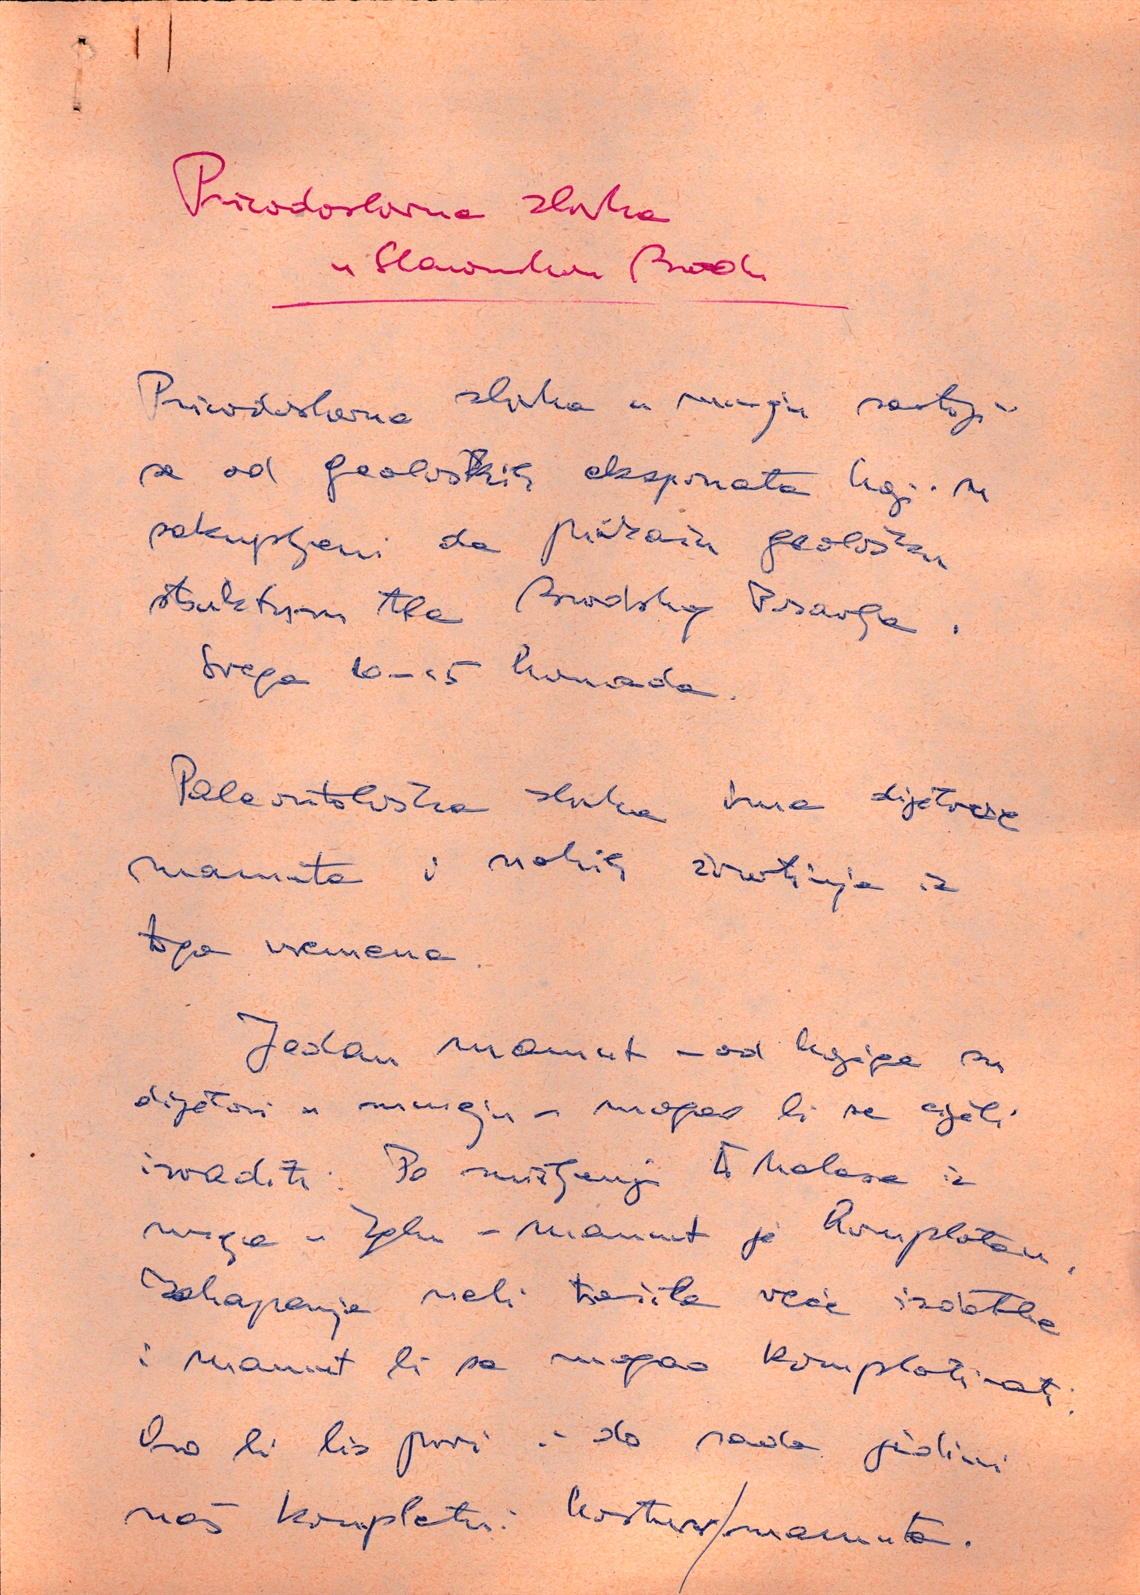 Prirodoslovna zbirka
u Slavonskom Brodu
Prirodoslovna zbirka u muzeju sastoji
se od geoloških eksponata koji su
sakupljeni da prikažu geološku
strukturu tla Brodskog Posavlja.
Svega 10-15 komada.
Paleontološka zbirka ima dijelove
mamuta i nekih životinja iz
toga vremena.
Jedan mamut - od kojega su
dijelovi u muzeju - mogao bi se cijeli
izvaditi. Po mišljenju Malesa iz
muzeja u Zgbu - mamut je kompletan.
Iskapanje nebi tražilo veće izdatke
i mamut bi se mogao kompletirati.
Ovo bi bio prvi i do sada jedini
naš kompletni kostur mamuta.